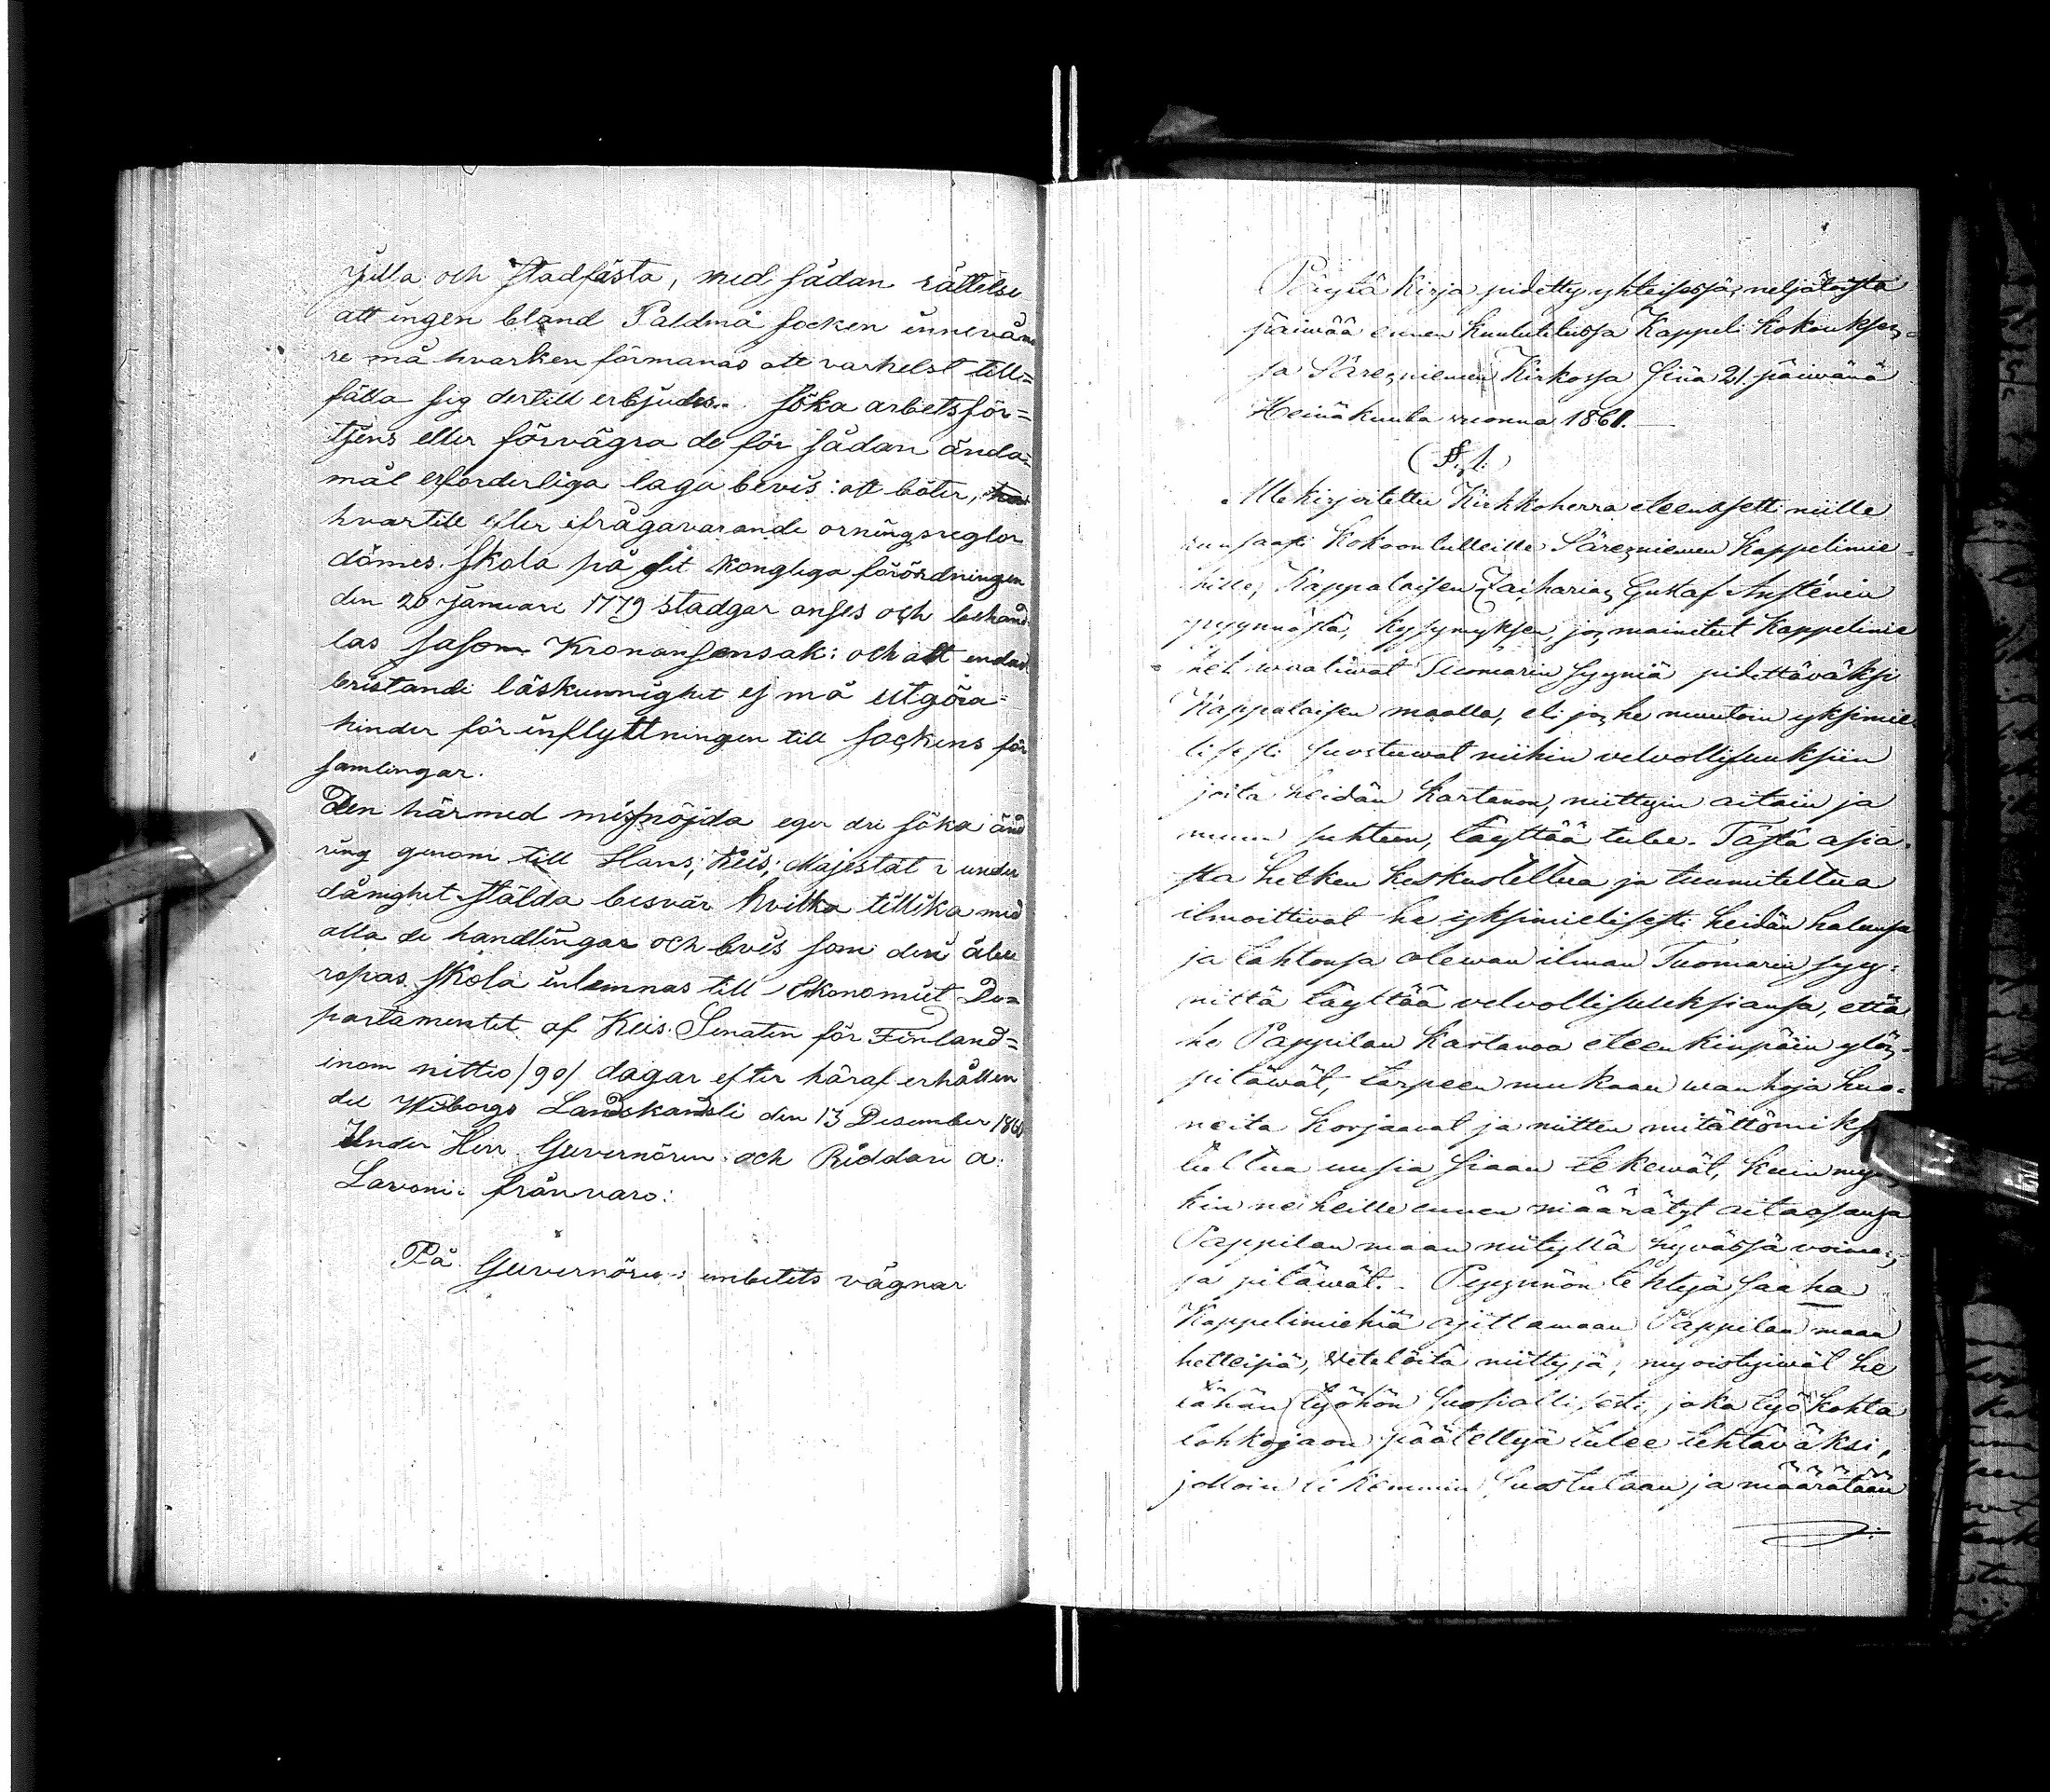 gilla och stadfästa, med sådan rättelse
att ingen bland Paldmä socken innevåna
re må hvarken förmanas att varhelst till=
fälla sig dertill erbjudes. söka arbetsför=
tjens eller förvägra de för sådan ända=
mål erforderliga laga bevis: att böter,
hvartill efter ifrågavarande orningsreglor
dömes. skola på sit kongliga förordningen
den 20 Januari 1779 stadgar anses och behand
las såsom Kronansensak: och att endast
bristande läskunnighet ej må utgöra=
hinder för inflyttningen till sockens för
samlingar.
Den härmed missnöjda eger dri söka änd
ring genom till Hans; Keis; Majestät i under
dånighet stälda besvär hvilka tillika med
alla de handlingar och bevis som deri åbe
ropas skola inlemnas till Ekonomiet De=
partamentet af Keis. Senaten för Finland=
inom nittio /90/ dagar efter häraf erhållen
del Wiborgs Landskansli den 13 Desember 1860
Under Herr Guvernören och Riddare a:
Lavoni: frånvaro:
På Guvernörs: embetets vägnar
Pöytä Kirja pidetty yhteisessä, neljätoista
päiwää ennen kuulutetussa Kappeli kokoukses=
sa Särezniemen Kirkossa Sinä 21. päiwänä
Heinäkuuta vuonna 1861.
(§. 1.)
Allekirjoitettu Kirkkoherra eteenasetti niille
runsaasti kokoontulleille Särezniemen Kappelimie=
hille, Kappalaisen Zacharias Gustaf Austénin
pyynnöstä, kysymyksen, jos mainitut Kappelimie
het waatiwat Tuomarin syyniä pidettäväksi
Kappalaisen maalla, eli jos he muutoin yksimie
lisesti suostuwat niihin velvollisuuksiin
joita heidän kartanon, niittyin aitain ja
muun suhteen, täyttää tulee. Tästä asia=
sta hetken keskusteltua ja tuumiteltua
ilmoittivat he yksimielisesti heidän halunsa
ja tahtonsa olewan ilman Tuomarin syy=
nittä täyttää velvollisuuksiansa, että
he Pappilan Kartanoa eteenkinpäin ylös=
pitäwät, tarpeen mukaan wanhoja huo=
neita korjaavat ja niitten mitättömiksi
tultua uusia siaan tekewät, kuin myös
kin ne heille ennen määrätyt aitaosansa
Pappilan maan niityllä hyvässä voimas=
sa pitäwät. Pyynnön tehtyä saaha
Kappelimiehiä ajittamaan Pappilan maan
hetteisiä, Weteläita niittyjä, myöistyiwät he
tähän työhön suosiallisesti, joka työ kohta
lohkojaon päätettyä tulee tehtäväksi,
jolloin likemmin suostutaan ja määrätään